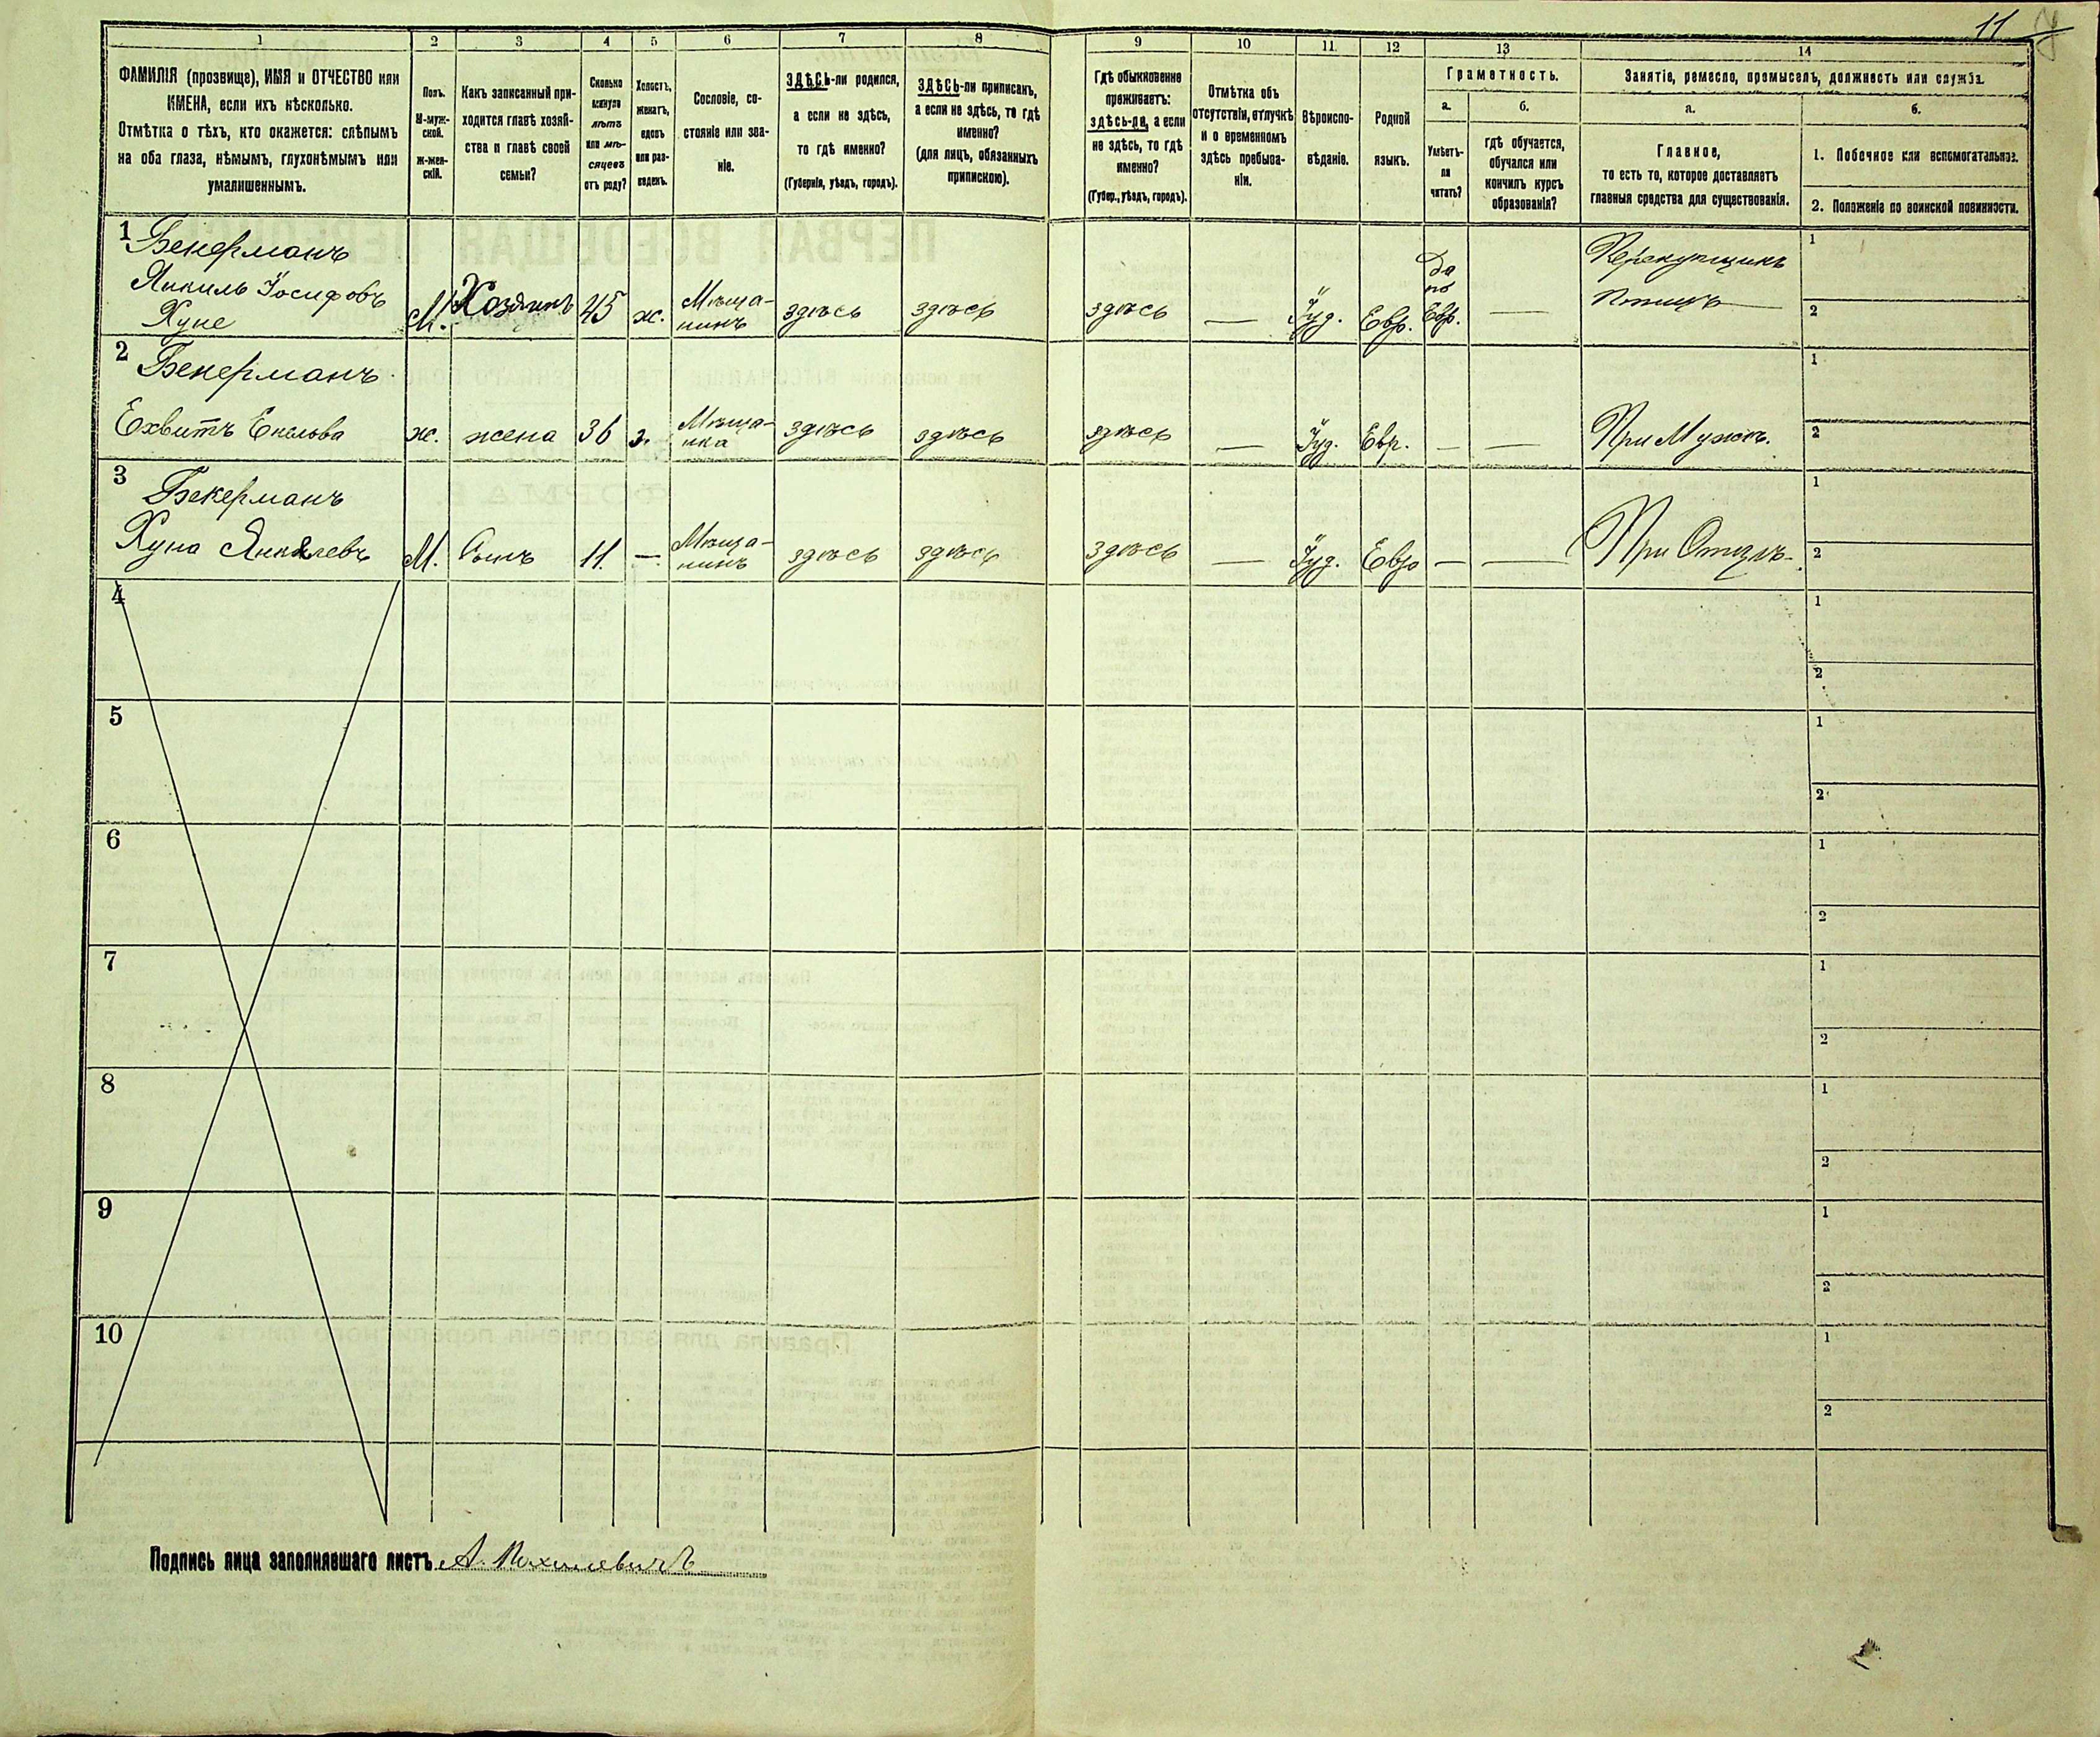 11
1 2 3 4 5 6 7 8 9 10 11 12 13 14
ФАМИЛІЯ (прозвище), ИМЯ и ОТЧЕСТВО или
ИМЕНА, если ихъ нѣсколько.
Отмѣтка о тѣхъ, кто окажется: слѣпымъ
на оба глаза, нѣмымъ, глухонѣмымъ или
умалишеннымъ.
Полъ.
М-муж-
ской.
Ж-жен-
скій.
Какъ записанный при-
ходится главѣ хозяй-
ства и главѣ своей
семьи?
Сколько
минуло
лѣтъ
или мѣ-
сяцевъ
отъ роду?
Холостъ,
женатъ,
вдовъ
или раз-
веденъ.
Сословіе, со-
стояніе или зва-
ніе.
ЗДѢСЬ-ли родился,
а если не здѣсь,
то гдѣ именно?
(Губернія, уѣздъ, городъ).
ЗДѢСЬ-ли приписанъ,
а если не здѣсь, то гдѣ
именно?
(для лицъ, обязанныхъ
припискою).
Гдѣ обыкновенно
проживаетъ:
здѣсь-ли, а если
не здѣсь, то гдѣ
именно?
(Губер., уѣздъ, городъ).
Отмѣтка объ
отсутствіи, отлучкѣ
и о временномъ
здѣсь пребыва-
ніи.
Вѣроиспо-
вѣданіе.
Родной
языкъ.
Грамотность.
а.
Умѣетъ-
ли
читать?
б.
гдѣ обучается,
обучался или
кончилъ курсъ
образованія?
Занятіе, ремесло, промыселъ, должность или служба.
а.
Главное,
то есть то, которое доставляетъ
главныя средства для существованія.
б.
1. Побочное или вспомогательное.
2. Положеніе по воинской повинности.
1 Бекерманъ
Янкиль Іосифовъ
Хуне
М. Хозяинъ 45 ж. Мѣща-
нинъ
здѣсь здѣсь здѣсь — Іуд. Евр.
Да
по
Евр. —
Перекупщикъ
птицъ
1
2
2 Бекерманъ
Ехвитъ Екелева
ж. жена 36 з. Мѣща-
нка
здѣсь здѣсь здѣсь — Іуд. Евр. — — При Мужѣ.
1
2
3 Бекерманъ
Хуна Янкелевъ
М. Сынъ 11. — Мѣща-
нинъ
здѣсь здѣсь здѣсь — Іуд. Евр — — При Отцѣ
1
2
4
1
2
5
1
2
6
1
2
7
1
2
8
1
2
9
1
2
10
1
2
Подпись лица заполнявшаго листъ